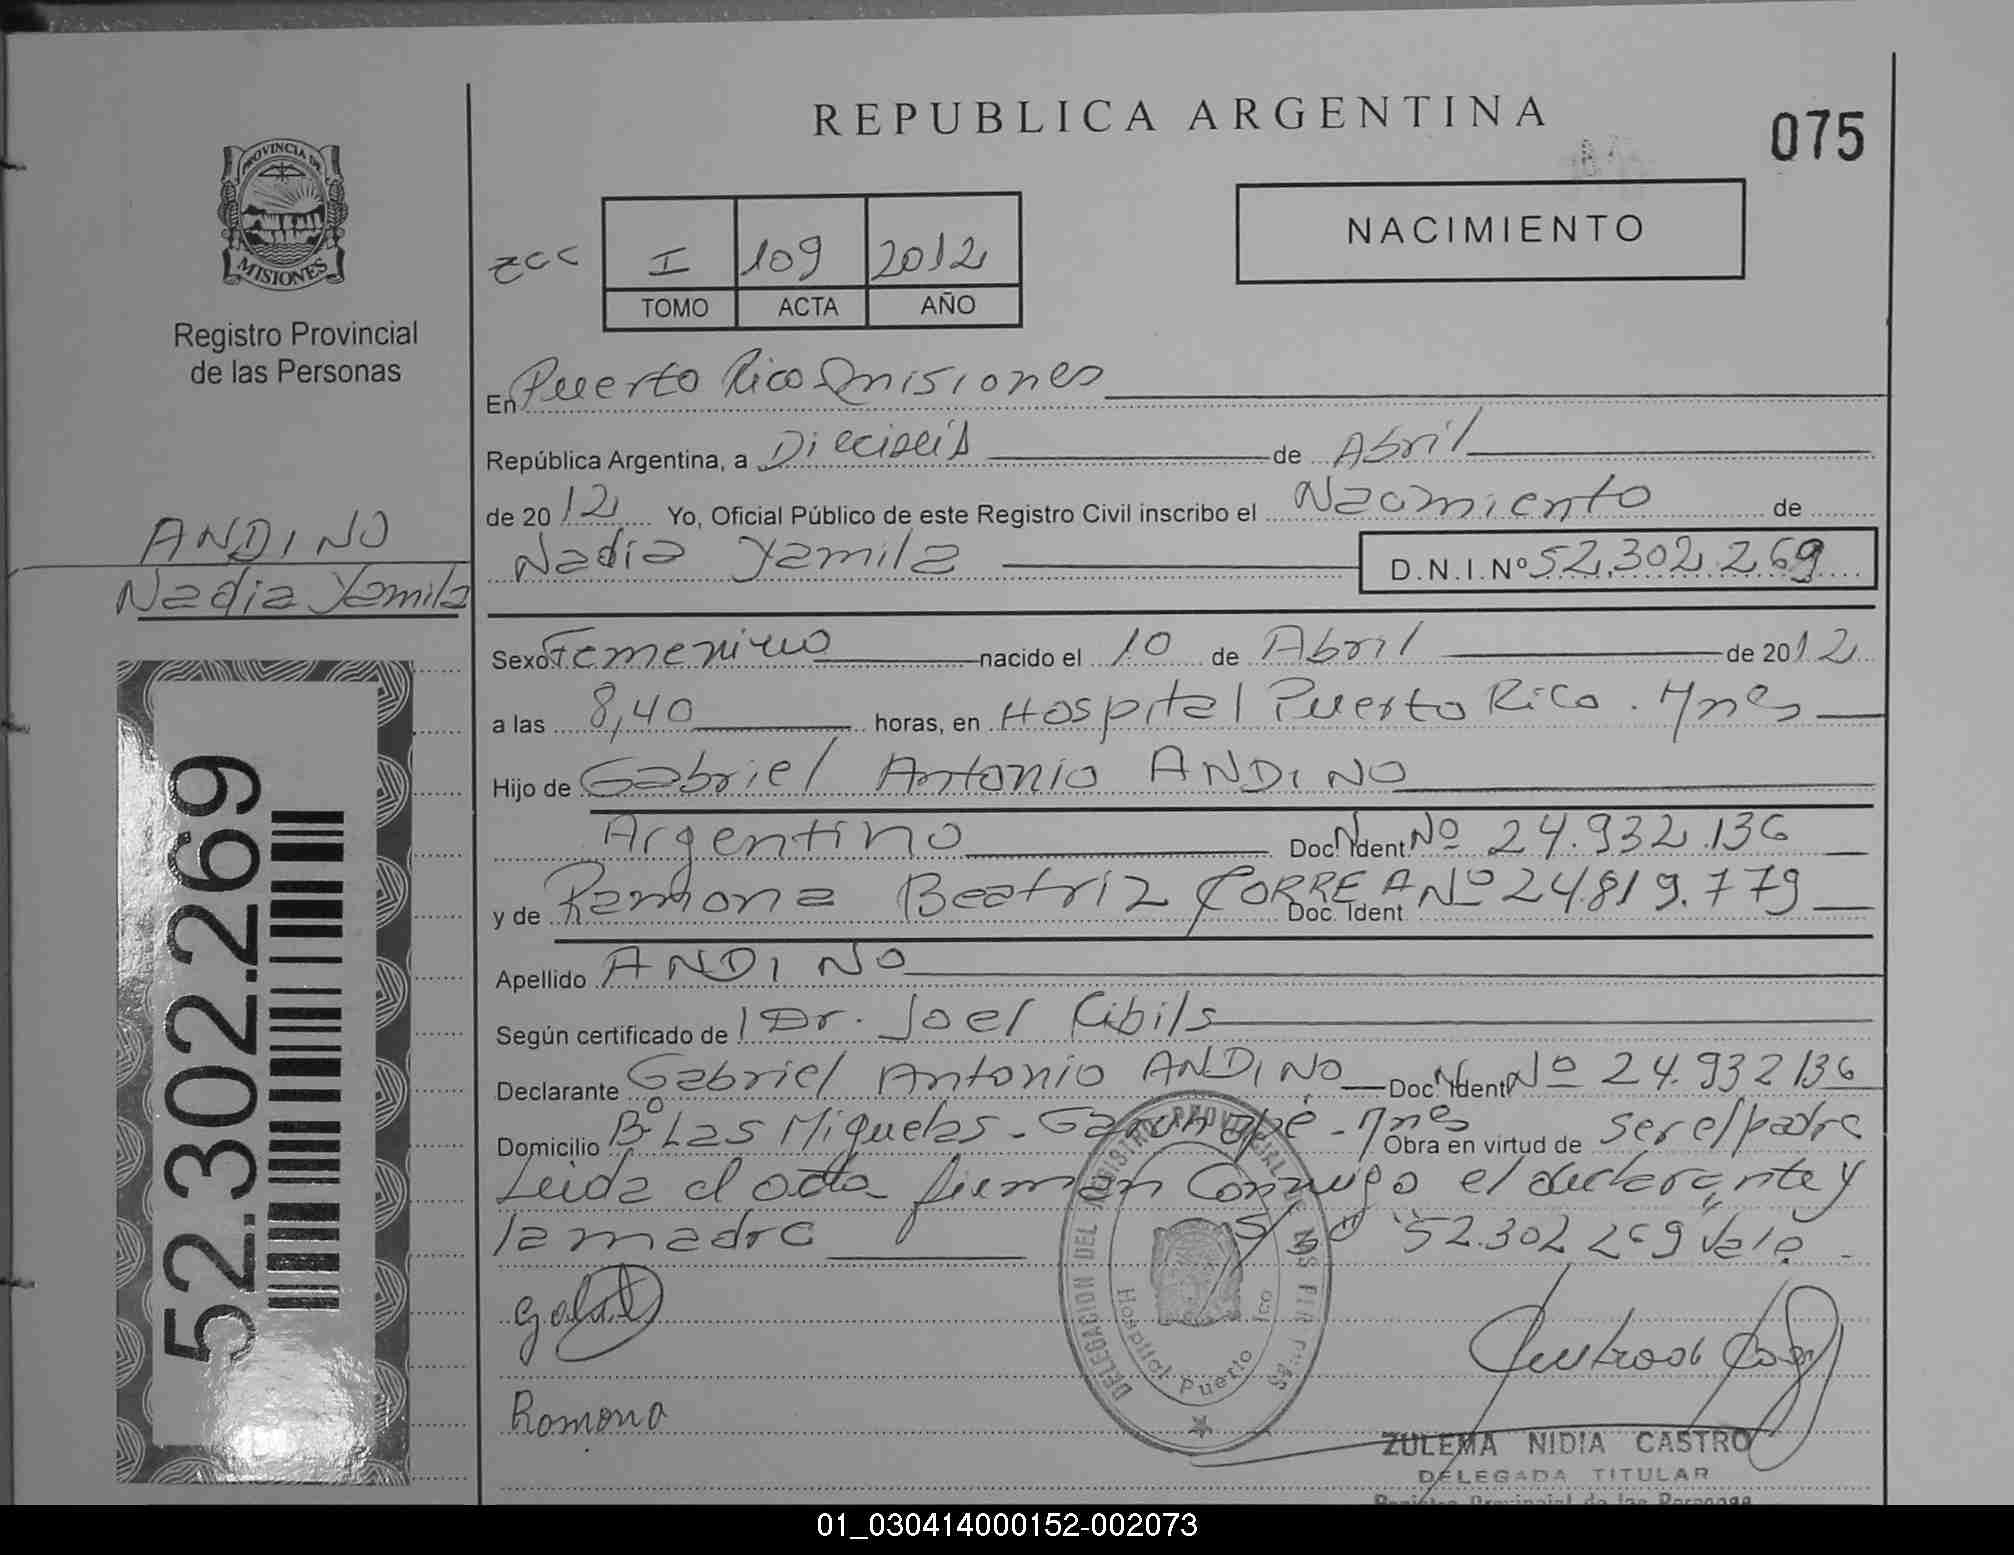 REPUBLICA ARGENTINA
075
PROVINCIA DE
MISIONES
Registro Provincial
de las Personas
NACIMIENTO
I 109 2012
TOMO ACTA AÑO
En Puerto Rico Misiones
República Argentina, a Dieciseis de Abril
de 2012 Yo, Oficial Público de este Registro Civil inscribo el Nacimiento de
Nadia Yamila D.N.I.Nº 52.302.269
ANDINO
Nadia Yamila
Sexo Femenino nacido el 10 de Abril de 2012
a las 8,40 horas, en Hospital Puerto Rico. Mnes
Hijo de Gabriel Antonio ANDINO
Argentino Doc. Ident. Nº 24.932.136
y de Ramona Beatriz CORREA Doc. Ident Nº 24.819.779
Apellido ANDINO
Según certificado de Dr. Joel Cibils
Declarante Gabriel Antonio ANDINO Doc. Ident Nº 24.932136
Domicilio Bº Las Miguelas - Garuhapé - Mnes Obra en virtud de ser el padre
Leida el acta firman conmigo el declarante y
la madre 52.302 269 Vale
52.302.269
DELEGACION DEL REGISTRO PROVINCIAL DE LAS PERSONAS
Hospital Puerto Rico
Ramona
ZULEMA NIDIA CASTRO
DELEGADA TITULAR
Registro Provincial de las Personas
01_030414000152-002073